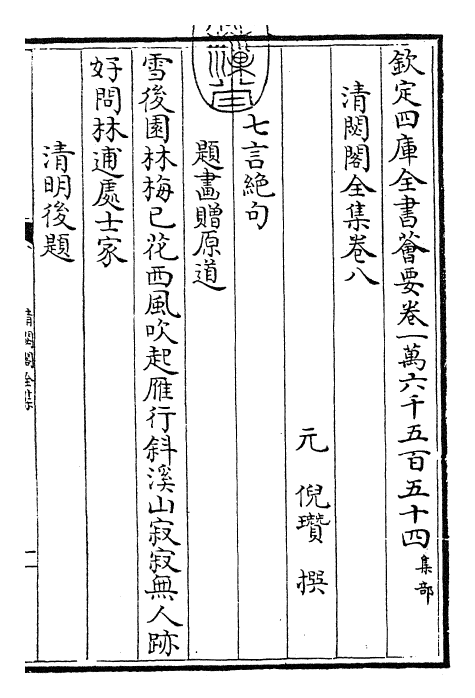 欽定四庫全書薈要卷一萬六千五百五十四集部
清閟閣全集卷八
元 倪瓚 撰
七言絶句
題畫贈原道
雪後園林梅已花西風吹起雁行斜溪山寂寂無人跡
好問林逋處士家
清明後題
清閟閣全集
一